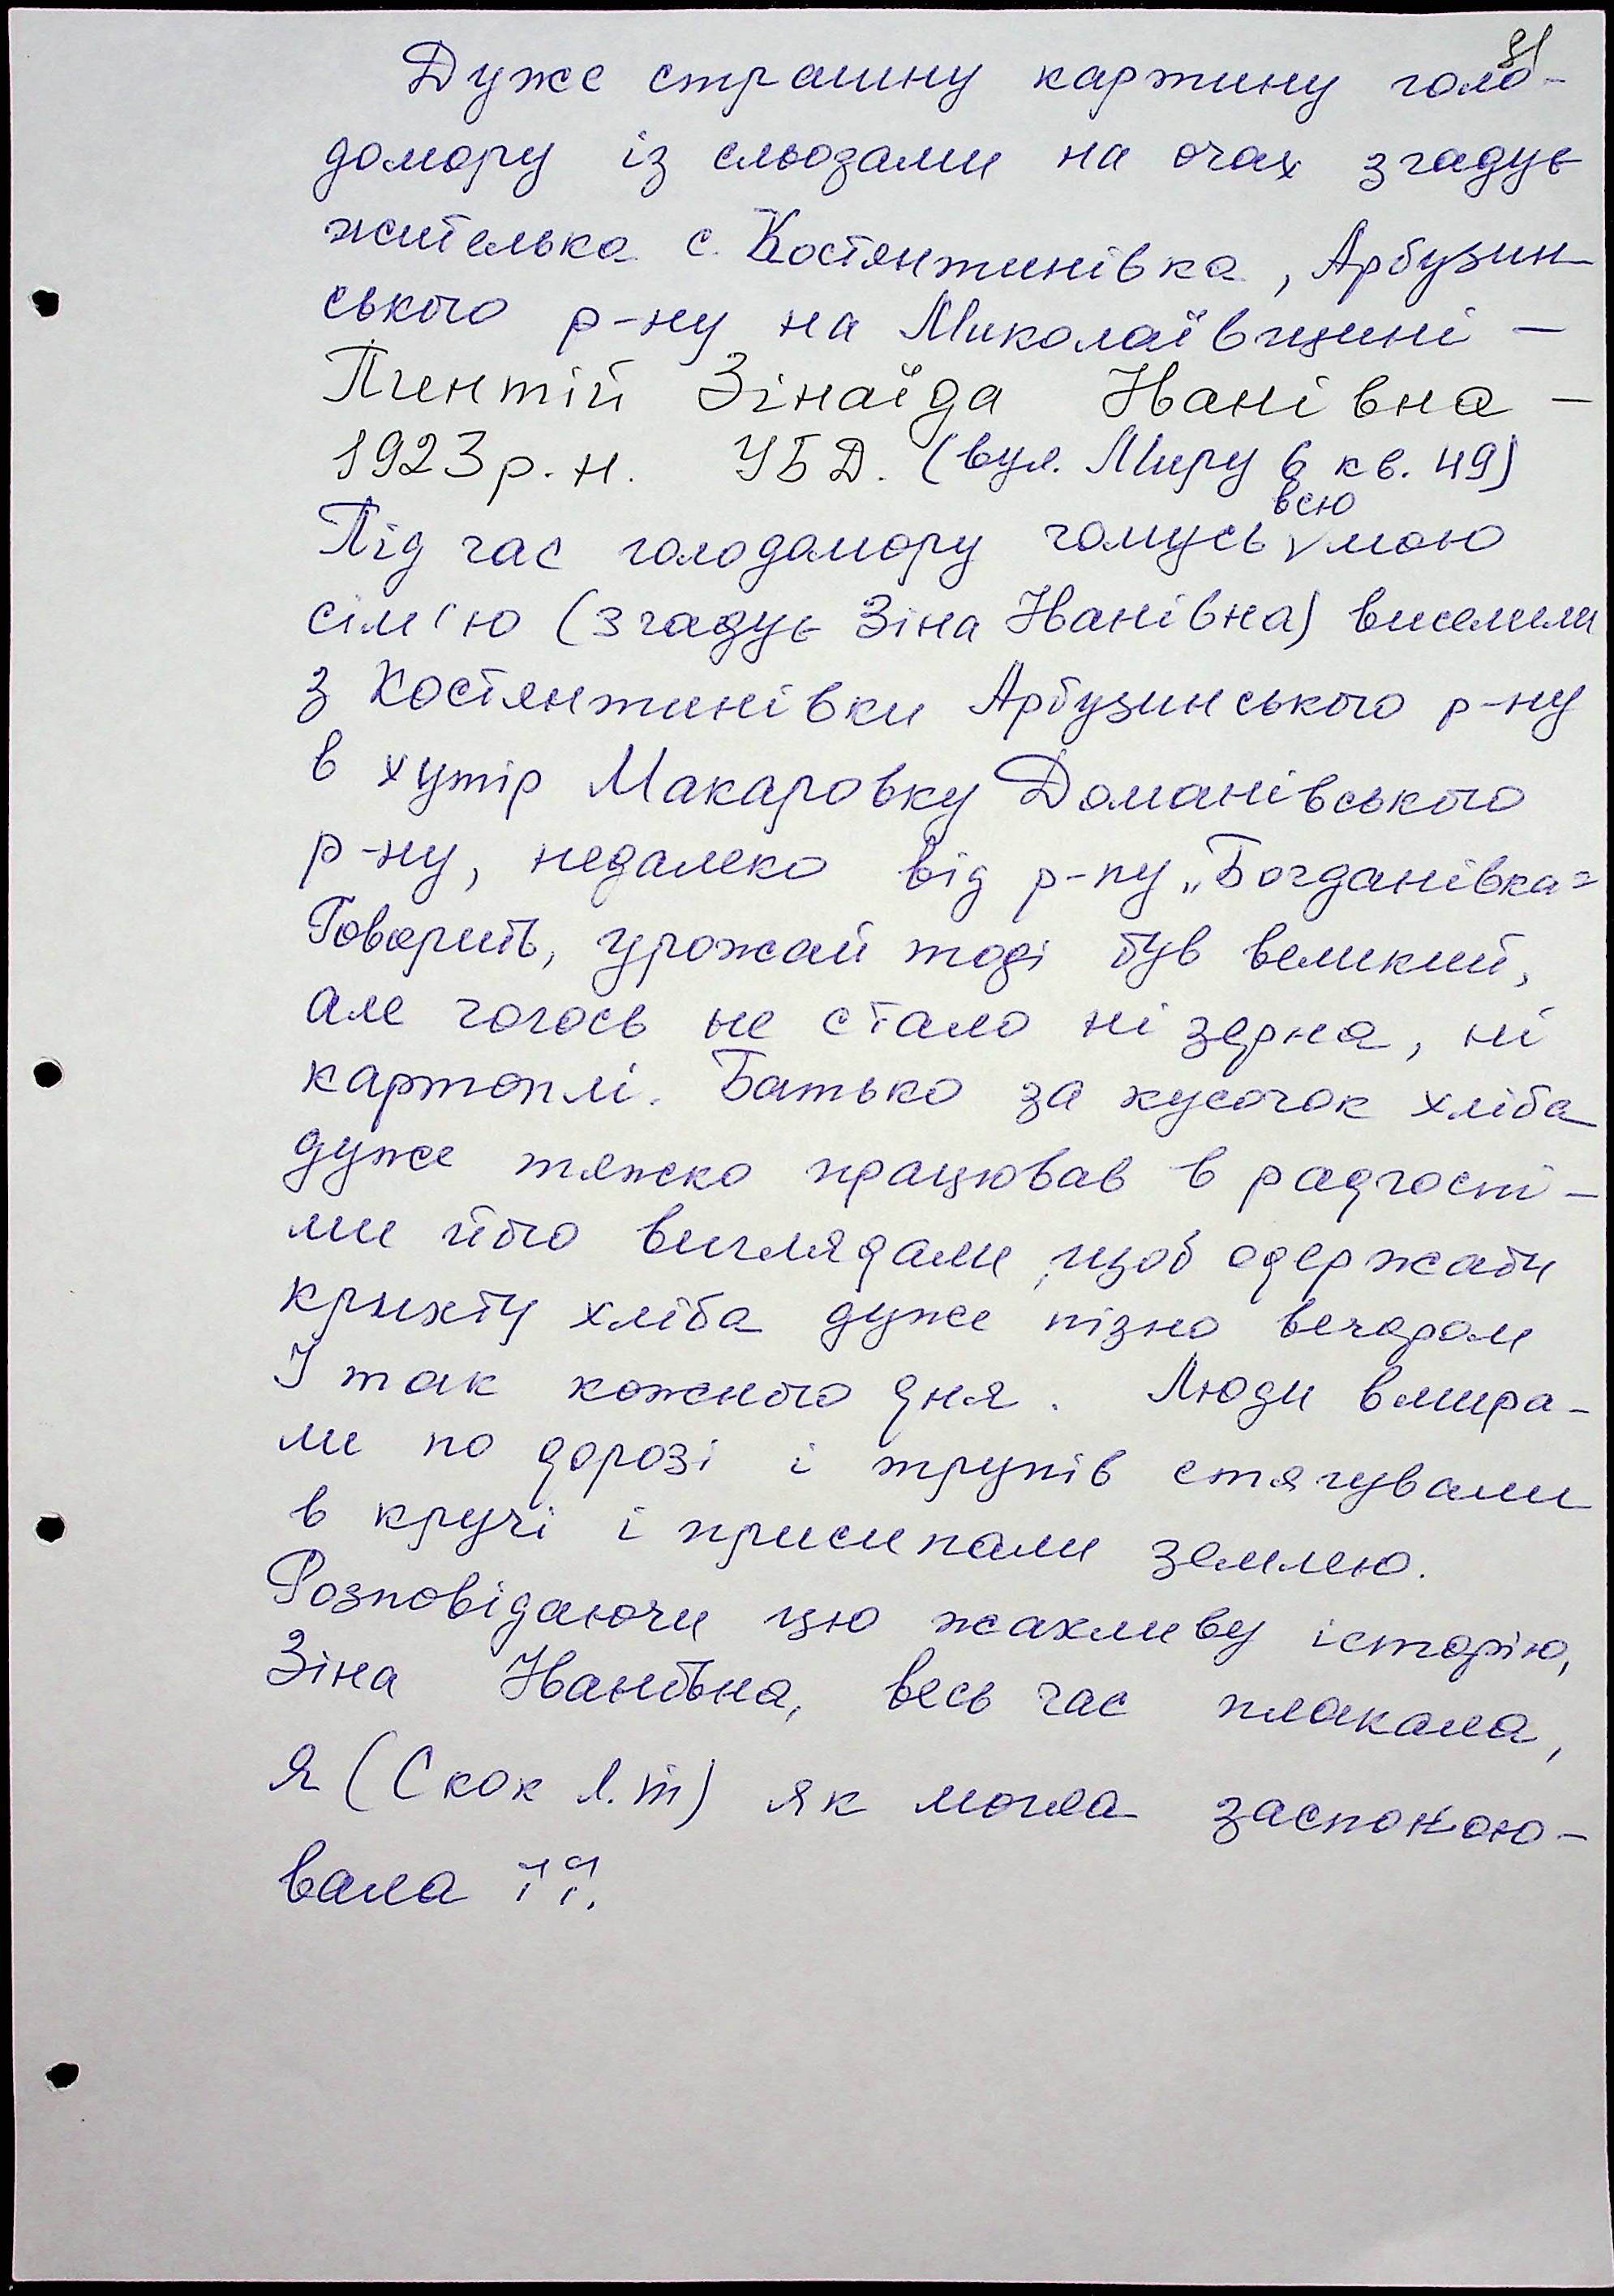 31
Дуже страшну картину голо-
домору із сльозами на очах згадує
жителька с. Костянтинівка, Арбузин-
ського р-ну на Миколаївщині –
Пентій Зінаїда Іванівна –
1923 р. н. УБД. (вул. Миру 6 кв. 49)
Під час голодомору чомусь всю мою
сім'ю (згадує Зіна Іванівна) виселили
з Костянтинівки Арбузинського р-ну
в хутір Макаровку Доманівського
р-ну, недалеко від р-пу „Богданівка"
Говорить, урожай тоді був великий,
але чогось не стало ні зерна, ні
картоплі. Батько за кусочок хліба
дуже тяжко працював в радгоспі –
ми його виглядали, щоб одержати
крихту хліба дуже пізно вечором
І так кожного дня. Люди вмира-
ли по дорозі і трупів стягували
в кручі і присипали землею.
Розповідаючи цю жахливу історію,
Зіна Іванівна, весь час плакала,
я (Скок Л.Т) як могла заспокою-
вала її.